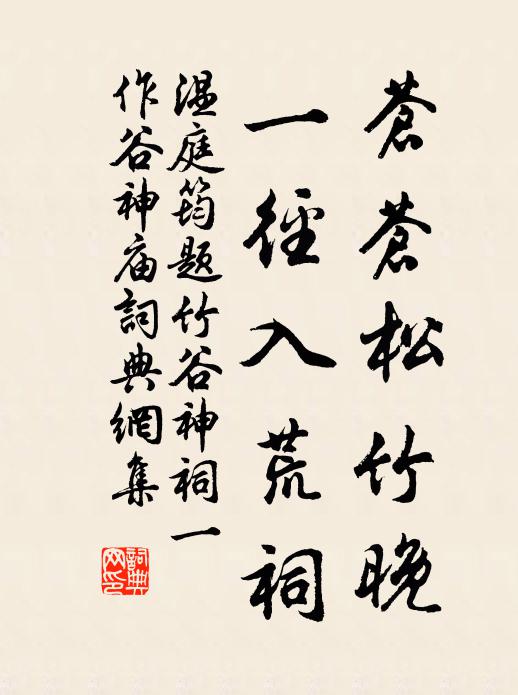 蒼蒼松竹晚
一徑入荒祠
溫庭筠題竹谷神祠一
作谷神庙詞典網集
詞典网印